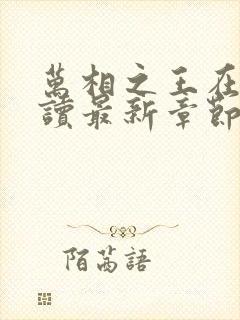 萬相之王在
讀最新章節
陌芮語